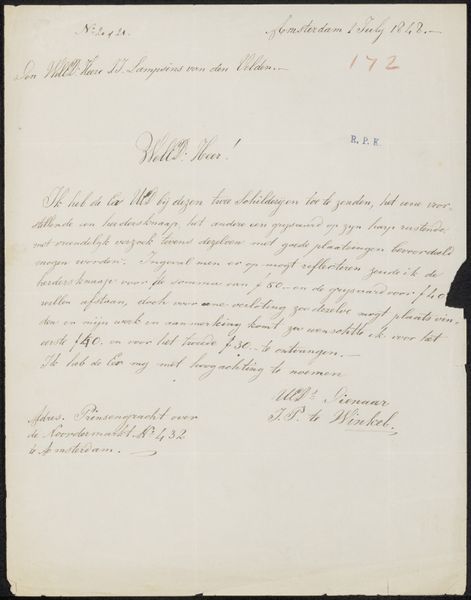 No 20 & 21.
Amsterdam 1 July 1848.—
172
Den WelEd. Heere J.J. Lampsins van den Velden.—
R. P. K.
WelEd. Heer!
Ik heb de Eer UEd bij dezen twee Schilderijen toe te zenden, het eene voor-
stellende een herdersknaap, het andere een grijsaard op zijn harp rustende
met vriendelijk verzoek tevens dezelven met goede plaatsingen bevoordeeld
mogen worden. Ingeval men er op mogt reflecteren zoude ik de
herdersknaap voor de somma van f 60 - en de grijsaard voor f 40
willen afstaan, doch voor eene verloting zoo dezelve mogt plaats vin-
den en mijn werk in aanmerking komt zoo wenschte ik voor het
eerste f 40. en voor het tweede f 30.- te ontvangen.—
Ik heb de Eer mij met hoogachting te noemen
UEds Dienaar
J. P. te Winkel.
Adres. Prinsengracht over
de Noordermarkt No 432
te Amsterdam.—